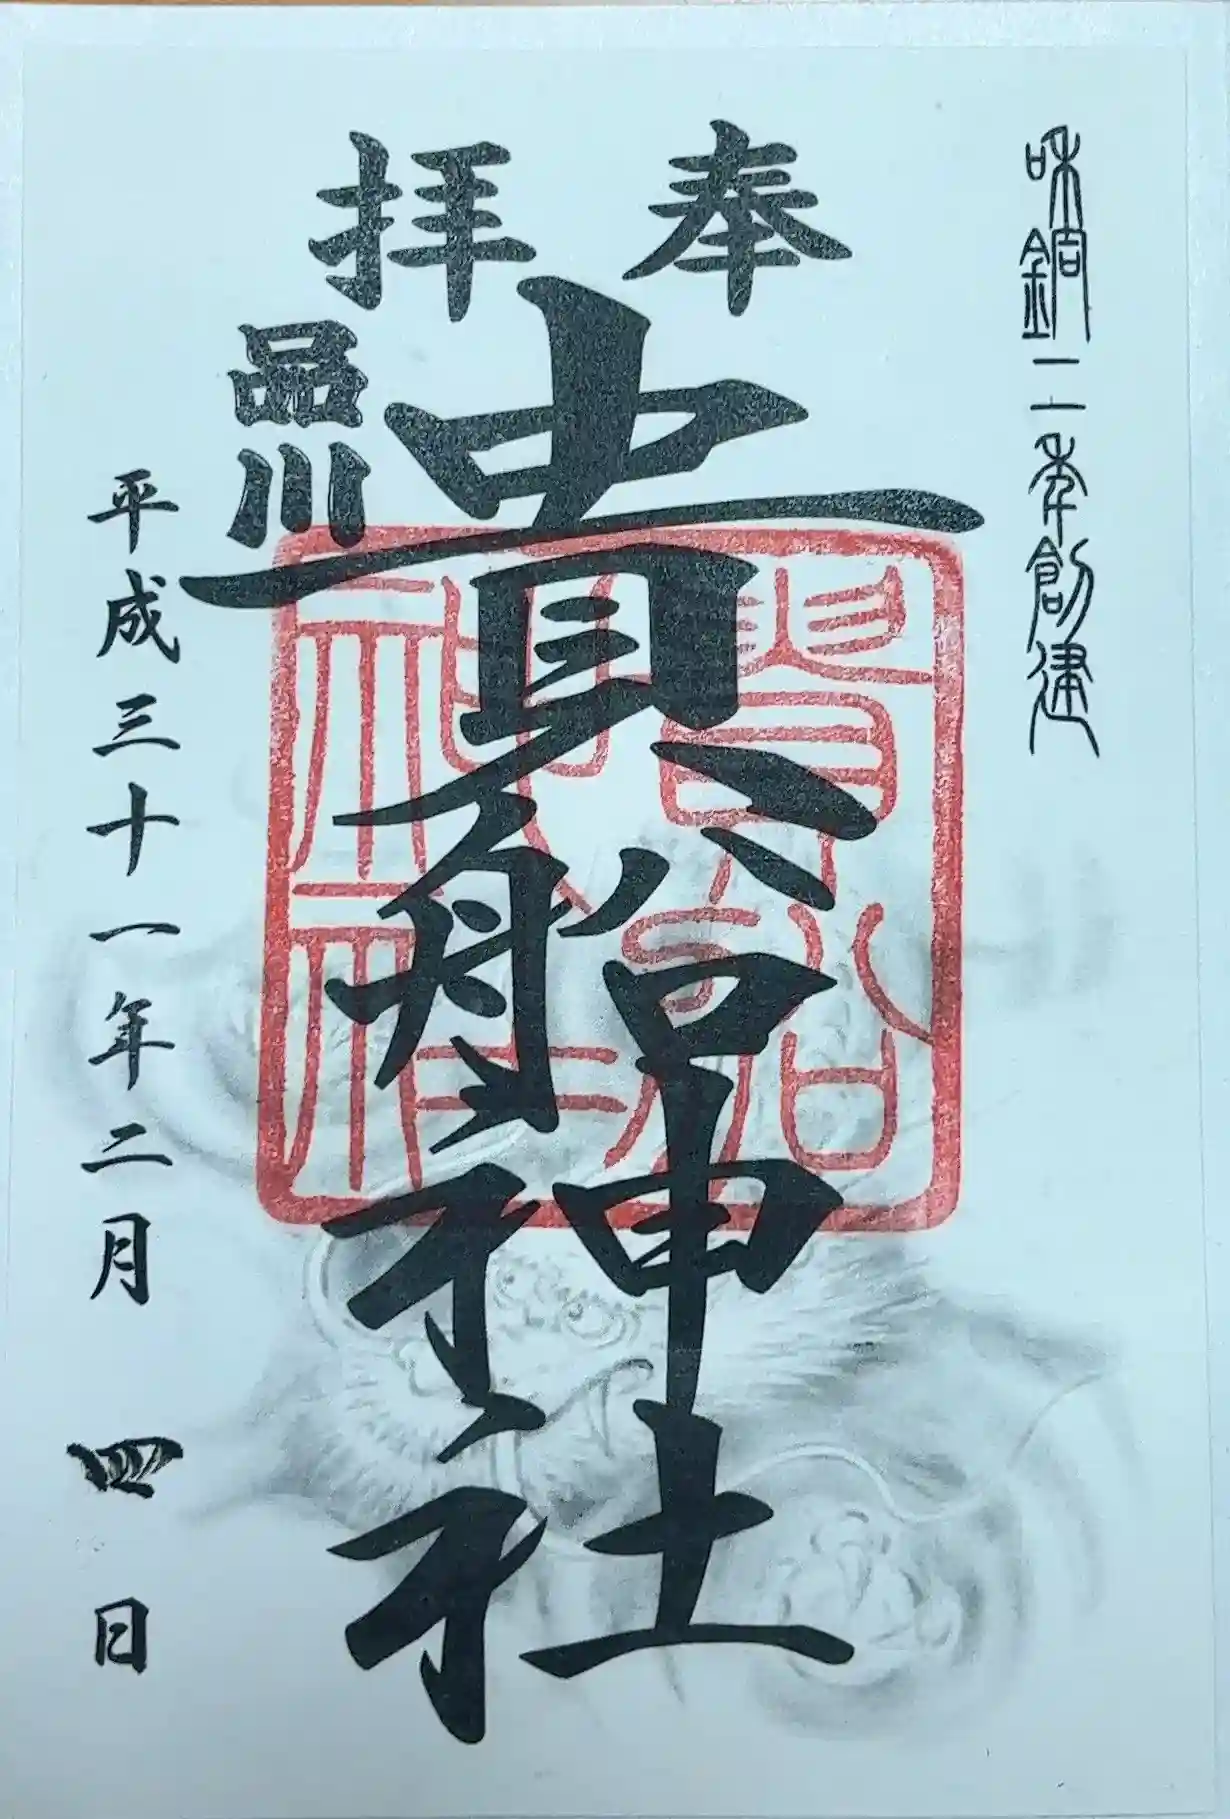 和銅二年創建
奉拝
品川
貴船神社
貴船神社
平成三十一年二月四日